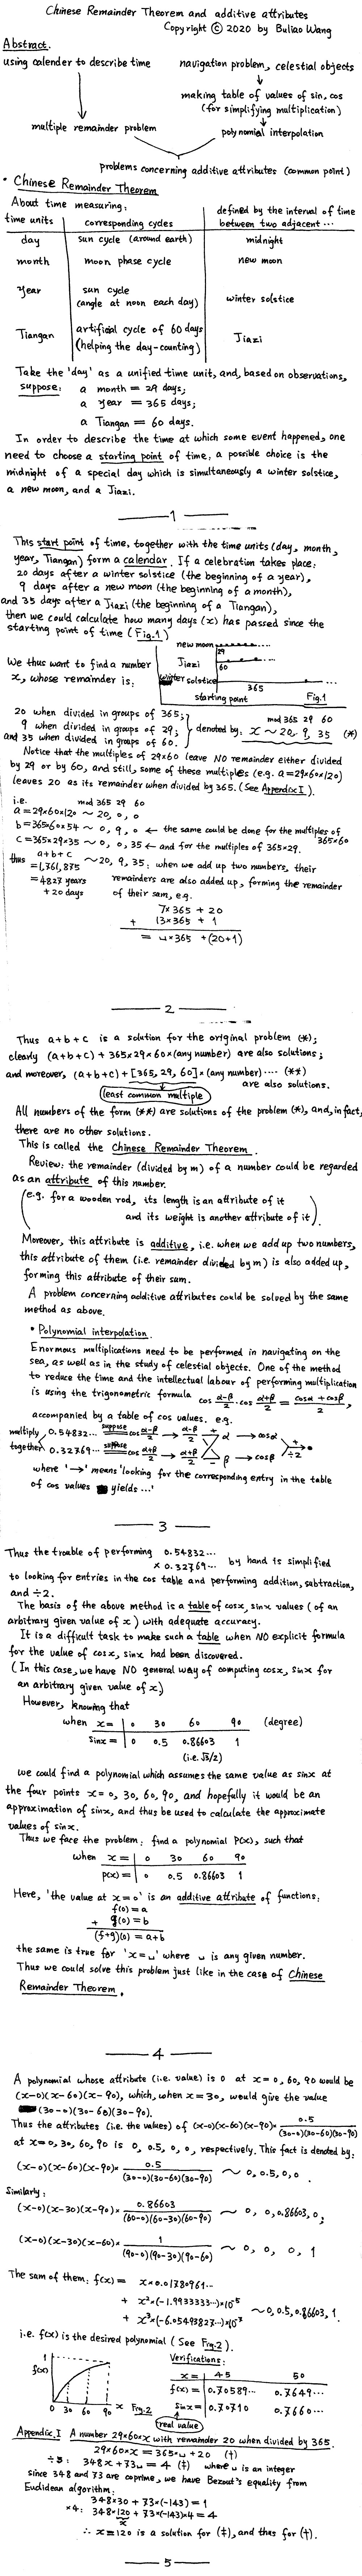 Chinese Remainder Theorem and additive attributes
Copyright © 2020 by Buliao Wang
Abstract.
using calender to describe time
navigation problem, celestial objects
making table of values of sin, cos
(for simplifying multiplication)
multiple remainder problem
polynomial interpolation
problems concerning additive attributes (common point)
• Chinese Remainder Theorem
About time measuring:
time units | corresponding cycles | defined by the interval of time between two adjacent ...
day | sun cycle (around earth) | midnight
month | moon phase cycle | new moon
Year | sun cycle (angle at noon each day) | winter solstice
Tiangan | artificial cycle of 60 days (helping the day-counting) | Jiazi
Take the 'day' as a unified time unit, and, based on observations,
suppose: a month = 29 days;
a year = 365 days;
a Tiangan = 60 days.
In order to describe the time at which some event happened, one
need to choose a starting point of time; a possible choice is the
midnight of a special day which is simultaneously a winter solstice,
a new moon, and a Jiazi.
—1—
This start point of time, together with the time units (day, month,
year, Tiangan) form a calendar. If a celebration takes place:
20 days after a winter solstice (the beginning of a year),
9 days after a new moon (the beginning of a month),
and 35 days after a Jiazi (the beginning of a Tiangan),
then we could calculate how many days (x) has passed since the
starting point of time (Fig.1)
new moon
29
Jiazi
60
winter solstice
365
starting point
Fig.1
We thus want to find a number
x, whose remainder is:
20 when divided in groups of 365;
9 when divided in groups of 29;
and 35 when divided in groups of 60.
denoted by: x ~ 20, 9, 35 (*)
mod 365 29 60
Notice that the multiples of 29×60 leave NO remainder either divided
by 29 or by 60, and still, some of these multiples (e.g. a=29×60×120)
leaves 20 as its remainder when divided by 365. (See Appendix I).
i.e. mod 365 29 60
a = 29×60×120 ~ 20, 0, 0
b = 365×60×54 ~ 0, 9, 0 ← the same could be done for the multiples of 365×60
c = 365×29×35 ~ 0, 0, 35 ← and for the multiples of 365×29.
thus a+b+c ~ 20, 9, 35: when we add up two numbers, their
=1,761,875
=4827 years
+20 days
remainders are also added up, forming the remainder
of their sum, e.g.
7×365 + 20
+ 13×365 + 1
= ␣×365 + (20+1)
—2—
Thus a+b+c is a solution for the original problem (*);
clearly (a+b+c) + 365×29×60×(any number) are also solutions;
and moreover, (a+b+c) + [365, 29, 60]×(any number) .... (**)
are also solutions.
least common multiple
All numbers of the form (**) are solutions of the problem (*), and, in fact,
there are no other solutions.
This is called the Chinese Remainder Theorem.
Review: the remainder (divided by m) of a number could be regarded
as an attribute of this number.
(e.g. for a wooden rod, its length is an attribute of it
and its weight is another attribute of it).
Moreover, this attribute is additive, i.e. when we add up two numbers,
this attribute of them (i.e. remainder divided by m) is also added up,
forming this attribute of their sum.
A problem concerning additive attributes could be solved by the same
method as above.
• Polynomial interpolation.
Enormous multiplications need to be performed in navigating on the
sea, as well as in the study of celestial objects. One of the method
to reduce the time and the intellectual labour of performing multiplication
is using the trigonometric formula cos (α-β)/2 · cos (α+β)/2 = (cosα + cosβ)/2,
accompanied by a table of cos values. e.g.
multiply together
0.54832... suppose cos (α-β)/2 → (α-β)/2 + α → cosα
0.32769... suppose cos (α+β)/2 → (α+β)/2 - β → cosβ
+ ÷2
where '→' means 'looking for the corresponding entry in the table
of cos values yields ...'
—3—
Thus the trouble of performing 0.54832...
× 0.32769... by hand is simplified
to looking for entries in the cos table and performing addition, subtraction,
and ÷2.
The basis of the above method is a table of cosx, sinx values (of an
arbitrary given value of x) with adequate accuracy.
It is a difficult task to make such a table when NO explicit formula
for the value of cosx, sinx had been discovered.
(In this case, we have NO general way of computing cosx, sinx for
an arbitrary given value of x)
However, knowing that
when x = | 0 30 60 90 (degree)
sinx = | 0 0.5 0.86603 1
(i.e. √3/2)
we could find a polynomial which assumes the same value as sinx at
the four points x = 0, 30, 60, 90, and hopefully it would be an
approximation of sinx, and thus be used to calculate the approximate
values of sinx.
Thus we face the problem: find a polynomial P(x), such that
when x = | 0 30 60 90
p(x) = | 0 0.5 0.86603 1
Here, 'the value at x=0' is an additive attribute of functions:
f(0) = a
+ g(0) = b
(f+g)(0) = a+b
the same is true for 'x=␣' where ␣ is any given number.
Thus we could solve this problem just like in the case of Chinese
Remainder Theorem.
—4—
A polynomial whose attribute (i.e. value) is 0 at x = 0, 60, 90 would be
(x-0)(x-60)(x-90), which, when x=30, would give the value
(30-0)(30-60)(30-90).
Thus the attributes (i.e. the values) of (x-0)(x-60)(x-90)× 0.5/((30-0)(30-60)(30-90))
at x = 0, 30, 60, 90 is 0, 0.5, 0, 0, respectively. This fact is denoted by:
(x-0)(x-60)(x-90)× 0.5/((30-0)(30-60)(30-90)) ~ 0, 0.5, 0, 0.
Similarly:
(x-0)(x-30)(x-90)× 0.86603/((60-0)(60-30)(60-90)) ~ 0, 0, 0.86603, 0;
(x-0)(x-30)(x-60)× 1/((90-0)(90-30)(90-60)) ~ 0, 0, 0, 1
The sum of them: f(x) = x×0.01780961...
+ x²×(-1.9933333...)×10⁻⁵
+ x³×(-6.05493827...)×10⁻⁷ ~ 0, 0.5, 0.86603, 1.
i.e. f(x) is the desired polynomial (See Fig.2).
1
f(x)
0 30 60 90 x Fig.2
Verifications:
x = | 45 50
f(x) = | 0.70589... 0.7649...
sinx = | 0.70710 0.7660...
real value
Appendix.I A number 29×60×x with remainder 20 when divided by 365.
29×60×x = 365×␣ + 20 (†)
÷5: 348x + 73␣ = 4 (‡) where ␣ is an integer
since 348 and 73 are coprime, we have Bezout's equality from
Euclidean algorithm:
348×30 + 73×(-143) = 1
×4: 348×120 + 73×(-143)×4 = 4
x
∴ x=120 is a solution for (‡), and thus for (†).
—5—